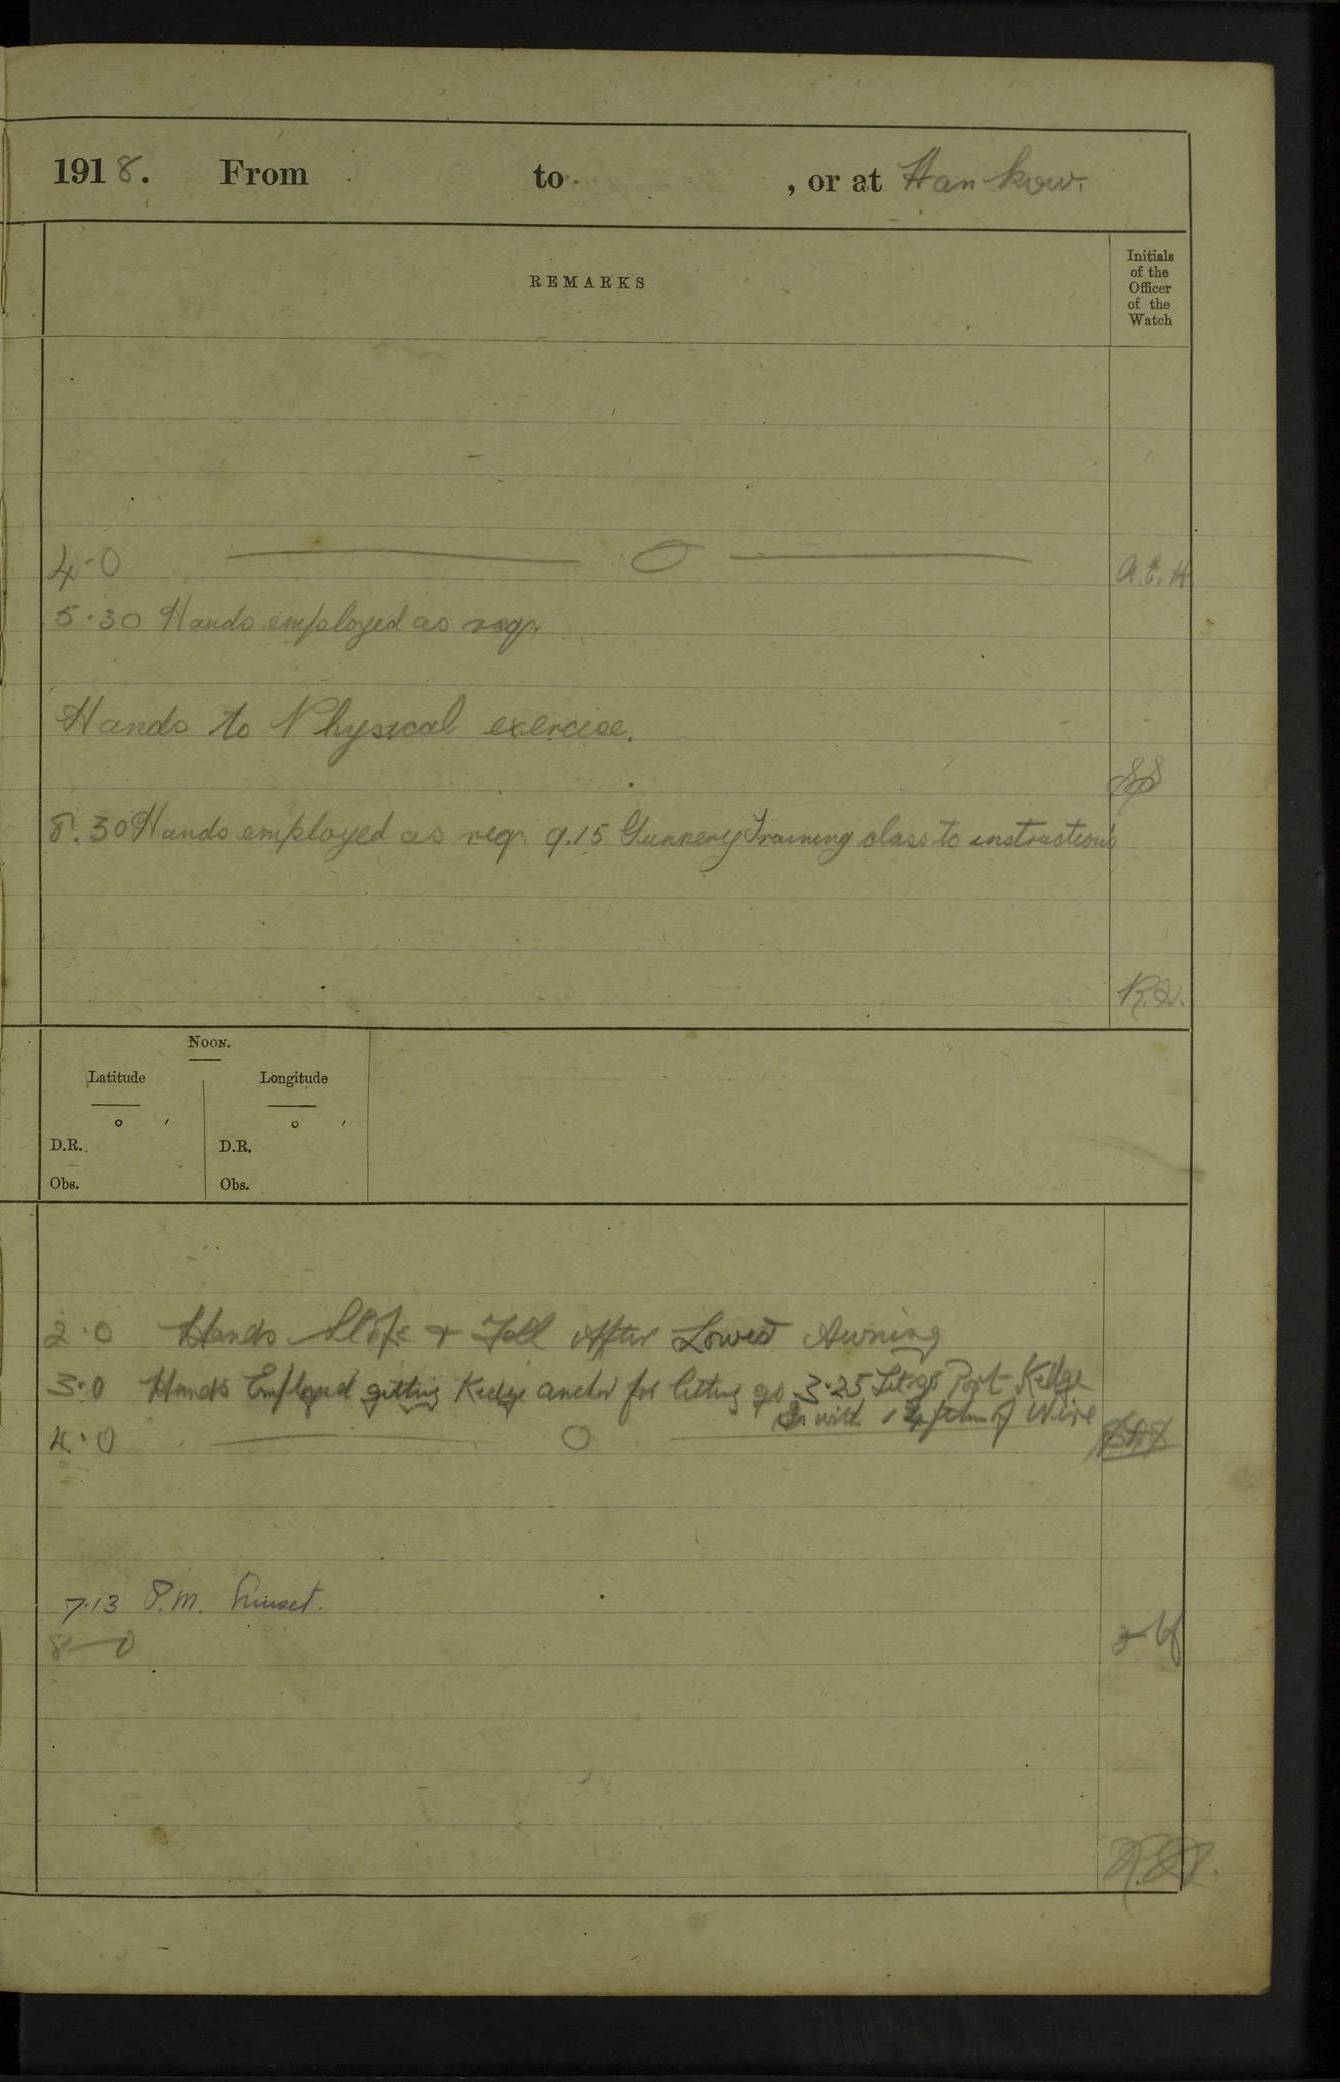 1918. From to , or at Hankow.
REMARKS
Initials
of the
Officer
of the
Watch
4-0 O A.E.H.
5.30 Hands employed as req.
Hands to Physical exercise.
8.30 Hands employed as req. 9.15 Gunnery Training class to instructions
NOON.
Latitude Longitude
° ′ ° ′
D.R. D.R.
Obs. Obs.
2.0 Hands & Fell After Lower Awning
3.0 Hands Employed getting Kedge anchor for letting go 3.25 Let go Port Kedge
with of Wire
4.0 O
7.13 P.M. Sunset.
8-0